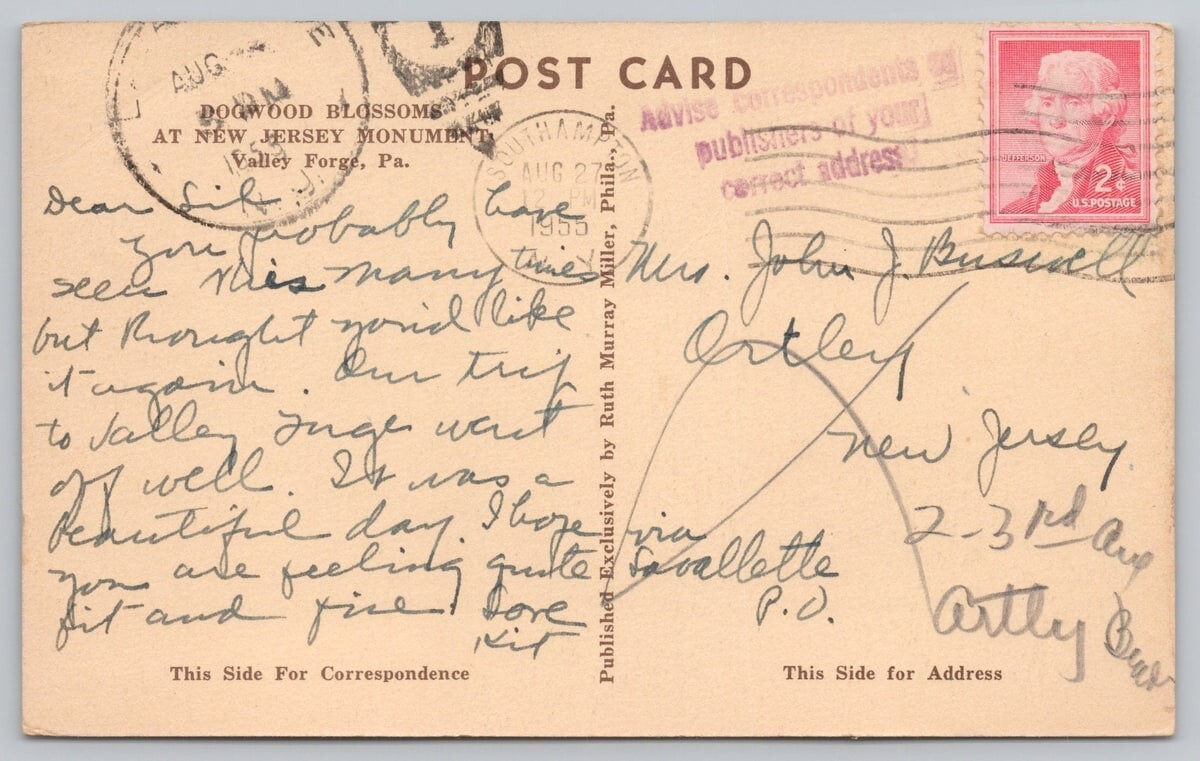 POST CARD
DOGWOOD BLOSSOMS
AT NEW JERSEY MONUMENT,
Valley Forge, Pa.
AUG
195
N. J.
1
SOUTHAMPTON
AUG 27
12 PM
1955
N. Y.
Advise correspondents or
publishers of your
correct address
JEFFERSON
2¢
U.S. POSTAGE
Dear Sil
You probably have
seen this many times
but thought you'd like
it again. Our trip
to Valley Forge went
off well. It was a
beautiful day. I hope
you are feeling quite
fit and fine. Love
Kit
Published Exclusively by Ruth Murray Miller, Phila., Pa.
Mrs. John J. Buswell
Ortley
New Jersey
via
Lavallette
P.O.
2-3rd Ave
Ortley Beach
This Side For Correspondence
This Side for Address